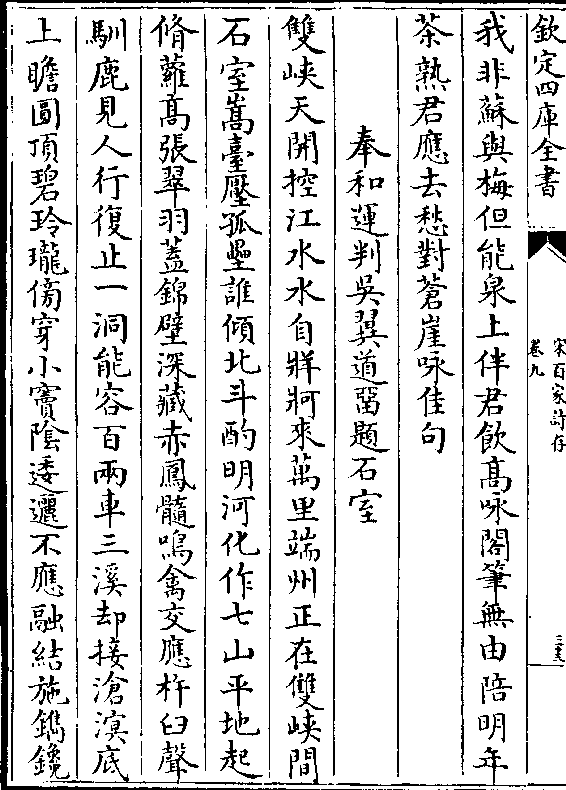 欽定四庫全書
宋百家詩存
卷九
三十三
我非蘇與梅但能泉上伴君飲高咏閣筆無由陪明年
茶熟君應去愁對蒼崖咏佳句
奉和運判吳翼道留題石室
雙峽天開控江水水自牂牁來萬里端州正在雙峽間
石室嵩臺壓孤壘誰傾北斗酌明河化作七山平地起
脩蘿高張翠羽蓋錦壁深藏赤鳳髓鳴禽交應杵臼聲
馴鹿見人行復止一洞能容百兩車三溪却接滄溟底
上瞻圓頂碧玲瓏傍穿小竇陰逶邐不應融結施鐫鑱